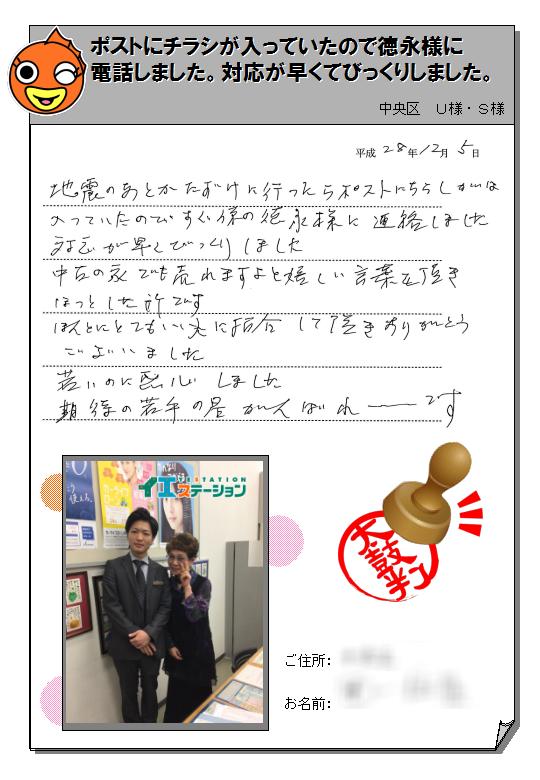 ポストにチラシが入っていたので德永様に
電話しました。対応が早くてびっくりしました。
中央区 U様・S様
平成 28年12月 5日
地震のあとかたずけに行ったらポストにちらしがは
入っていたのですぐ様の德永様に連絡しました
対応が早くびっくりしました
中古の家でも売れますよと嬉しい言葉を頂き
ほっとした所です
ほんとにとてもいい人に紹介して頂きありがとう
ございました
若いのに感心しました
期待の若手の星がんばれ――です
イエステーション
STATION
太鼓判
ご住所:
お名前: